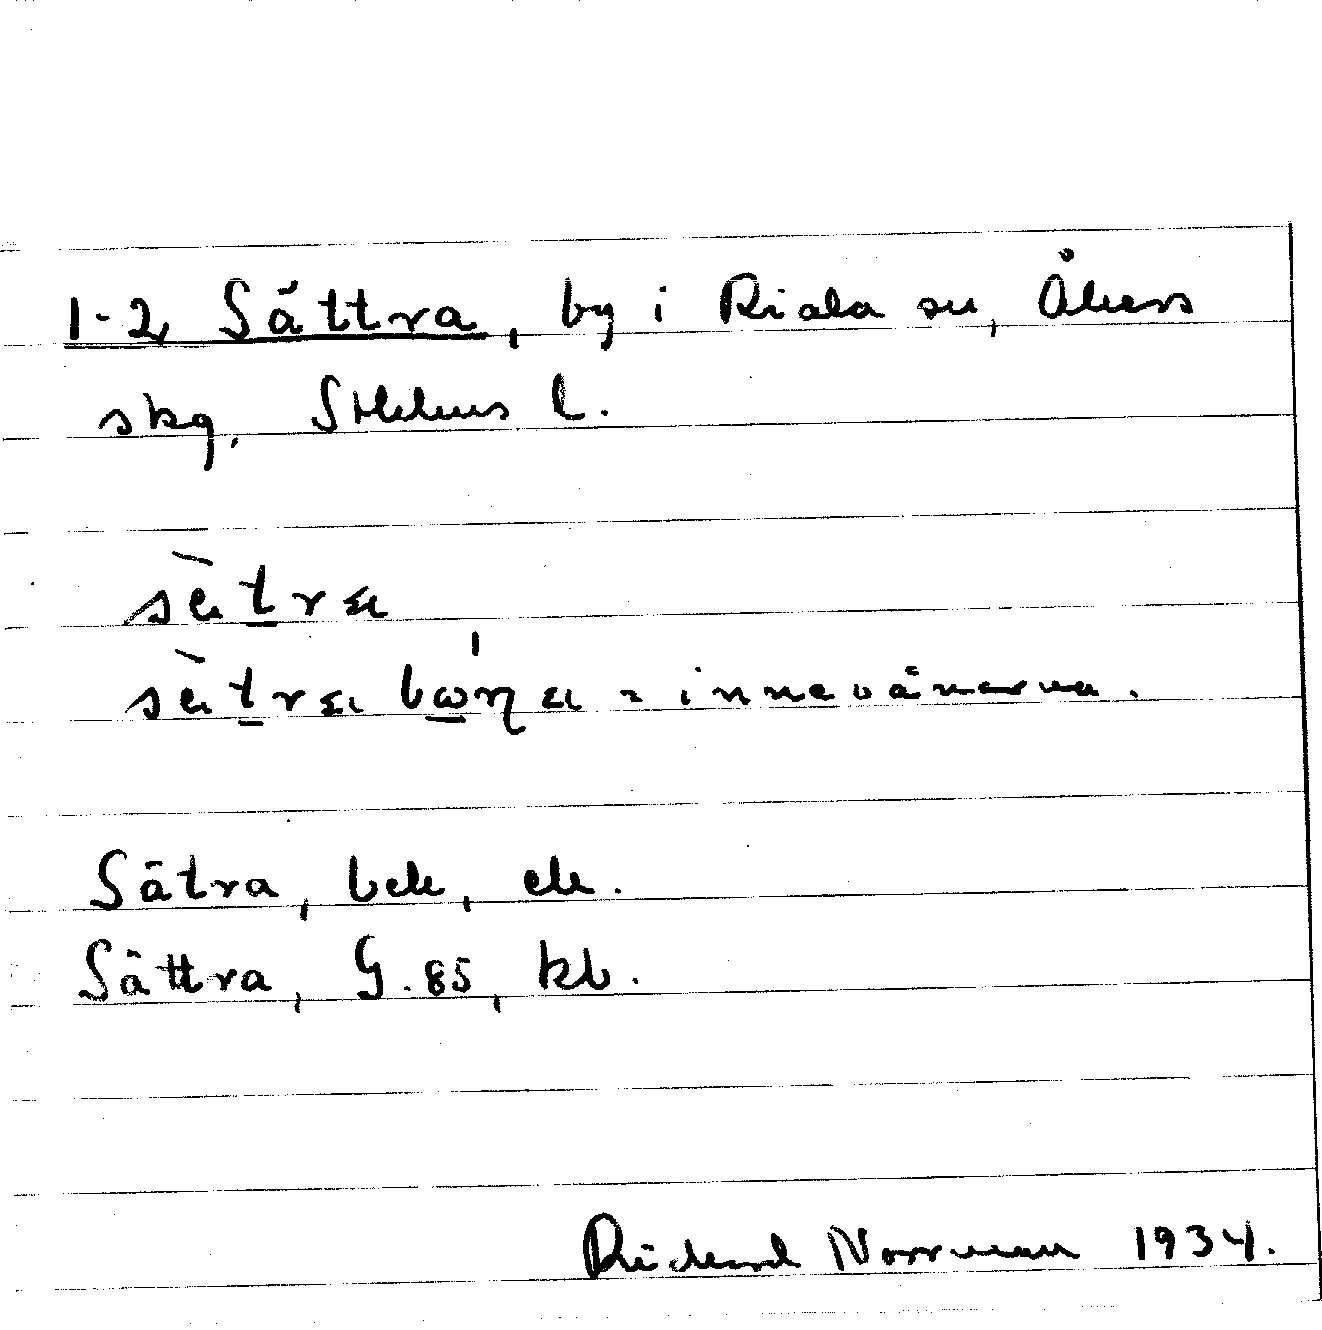 1-2, Sättra, by i Riala sn, Åkers
skg, Sthlms l.
sètra
sètra bωηa = innevånarna.
Sätra, bek, ek.
Sättra, G.85, kb.
Richard Norrman 1934.